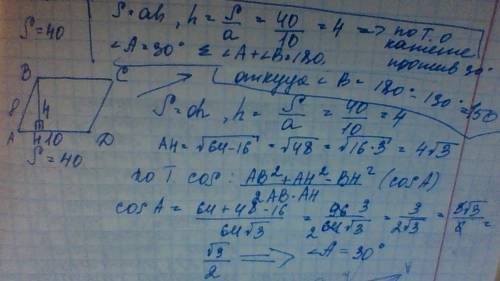 S=40
S=ah, h = S/a = 40/10 = 4 => по Т. о
катете
против 30°
∠A=30° ∠A+∠B=180,
откуда ∠B = 180° - 30° = 150
B C
8 4
A H 10 D
S=40
S=ah, h = S/a = 40/10 = 4
AH = √64-16 = √48 = √16·3 = 4√3
по Т. cos: (AB²+AH²-BH²)/(2AB·AH) (cos A)
cos A = (64+48-16)/(64√3) = 96/(64√3) = 3/(2√3) =
√3/2 => ∠A=30°